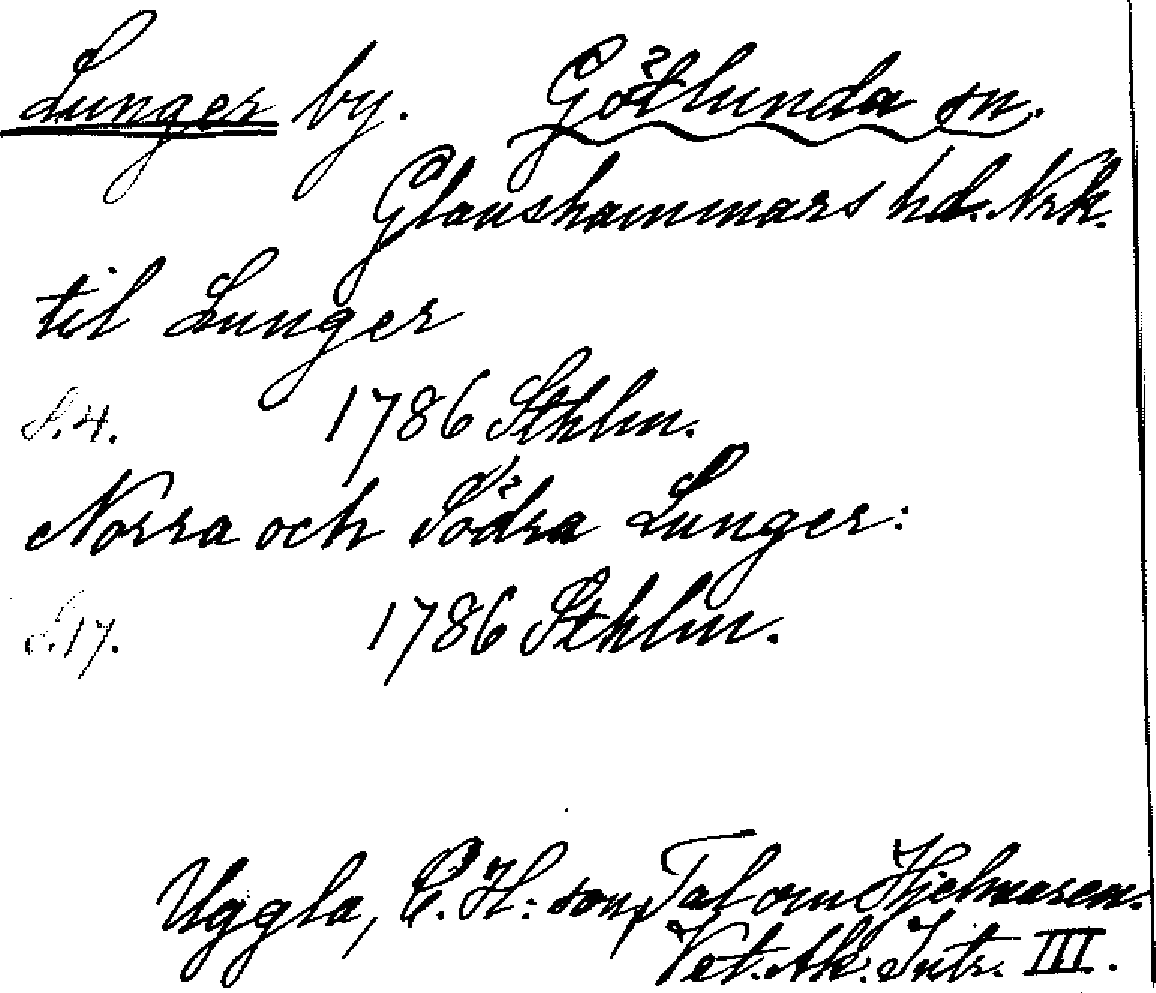 Lunger by. Götlunda sn.
Glanshammars hd. Nrk.
til Lunger
S.4. 1786 Sthlm.
Norra och Södra Lunger:
S.17. 1786 Sthlm.
Uggla, C. H:son, Tal om Hjelmaren.
Vet. Ak. Intr. III.